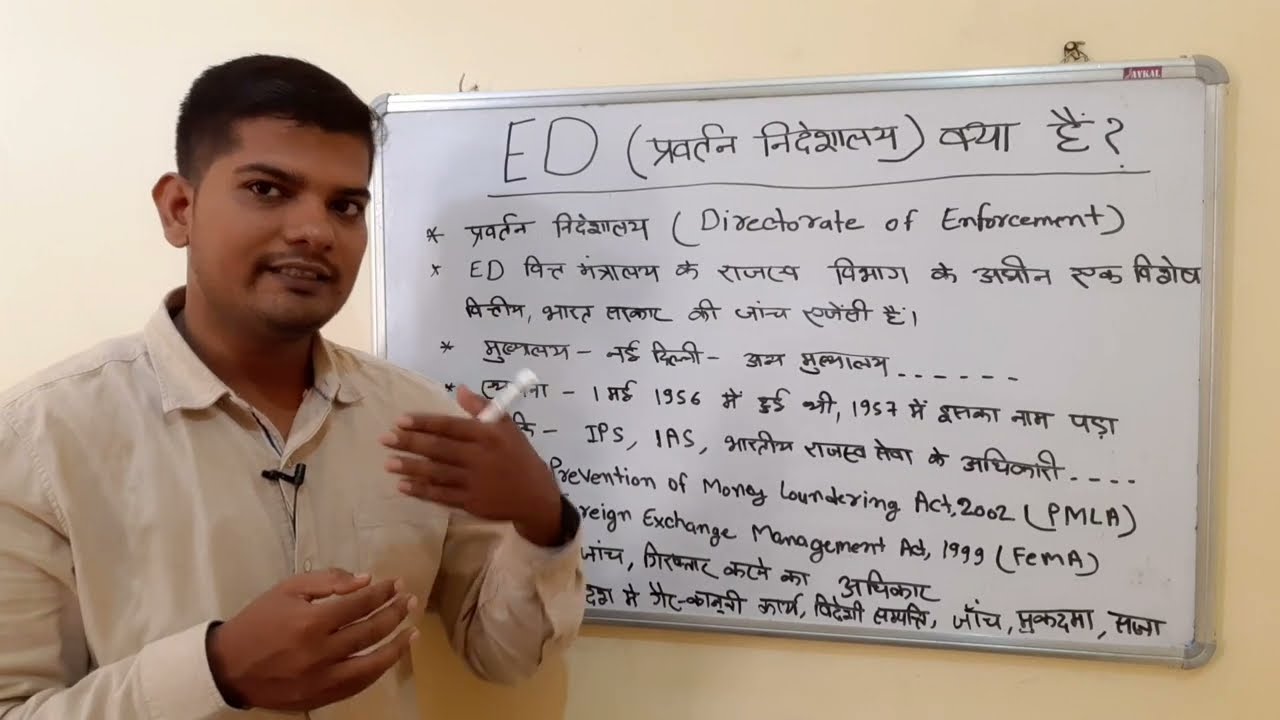 JAYKAL
ED (प्रवर्तन निदेशालय) क्या हैं?
* प्रवर्तन निदेशालय (Directorate of Enforcement)
* ED वित्त मंत्रालय के राजस्व विभाग के अधीन एक विशेष
वित्तीय, भारत सरकार की जांच एजेंसी हैं।
* मुख्यालय - नई दिल्ली - अन्य मुख्यालय . . . . . .
* - 1 मई 1956 में हुई थी, 1957 में इसका नाम पड़ा
- IPS, IAS, भारतीय राजस्व सेवा के अधिकारी . . . .
Prevention of Money Loundering Act, 2002 (PMLA)
reign Exchange Management Act, 1999 (FemA)
जांच, गिरफ्तार करने का अधिकार
देश में गैर-कानूनी कार्य, विदेशी सम्पत्ति, जाँच, मुकदमा, सजा